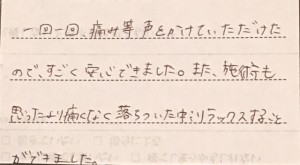 一回一回、痛み等声をかけていただけた
ので、すごく安心できました。また、施術も
思ったより痛くなく落ちついた中リラックスすること
ができました。